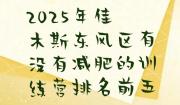 2025年佳
木斯东风区有
没有减肥的训
练营排名前五